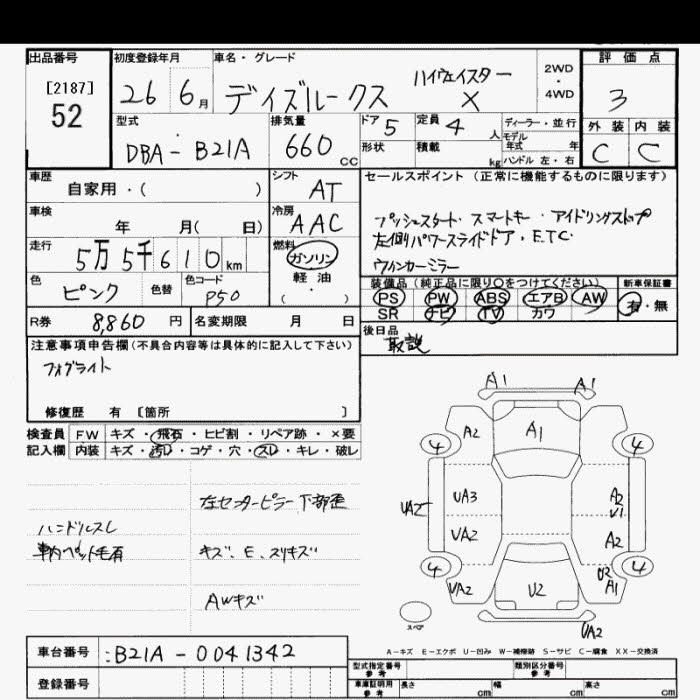 出品番号 初度登録年月 車名・グレード 評価点
[2187]
52
26 6月 デイズルークス ハイウェイスター X 2WD・4WD 3
型式 DBA-B21A 排気量 660cc
ドア 5 定員 4人 ディーラー・並行
形状 積載 kg モデル年式 年 ハンドル 左・右
外装 内装
C C
車歴 自家用・( ) シフト AT
セールスポイント(正常に機能するものに限ります)
車検 年 月( 日) 冷房 AAC
プッシュスタート・スマートキー・アイドリングストップ
左側パワースライドドア・ETC
ウィンカーミラー
走行 5万5千610km 燃料 ガソリン 軽油 ・( )
色 ピンク 色替 色コード P50
装備品(純正品に限り○をつけてください) 新車保証書
PS PW ABS エアB AW 有・無
SR ナビ TV カワ
R券 8,860円 名変期限 月 日
後日品 取説
注意事項申告欄(不具合内容等は具体的に記入して下さい)
フォグライト
修復歴 有 [箇所 ]
検査員 FW キズ・飛石・ヒビ割・リペア跡・×要
記入欄 内装 キズ・汚レ・コゲ・穴・スレ・キレ・破レ
左センターピラー下部歪
ハンドルスレ
車内ペット毛有
キズ、E、スリキズ
AWキズ
A1 A1
A2 A1
4 4
UA3 A2
UA2 U1
UA2 A2
4 4
U2
UA2 U2 A1
スペア
UA2
A-キズ E-エクボ U-凹み W-補修跡 S-サビ C-腐食 XX-交換済
車台番号 :B21A-0041342
型式指定番号 参考 類別区分番号 参考
登録番号
車庫証明用 参考 長さ cm 幅 cm 高さ cm